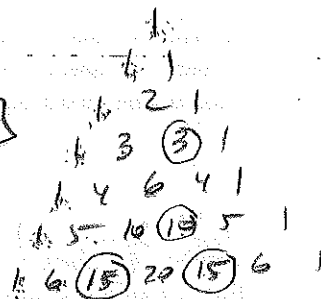 1
1 1
1 2 1
1 3 3 1
1 4 6 4 1
1 5 10 10 5 1
1 6 15 20 15 6 1